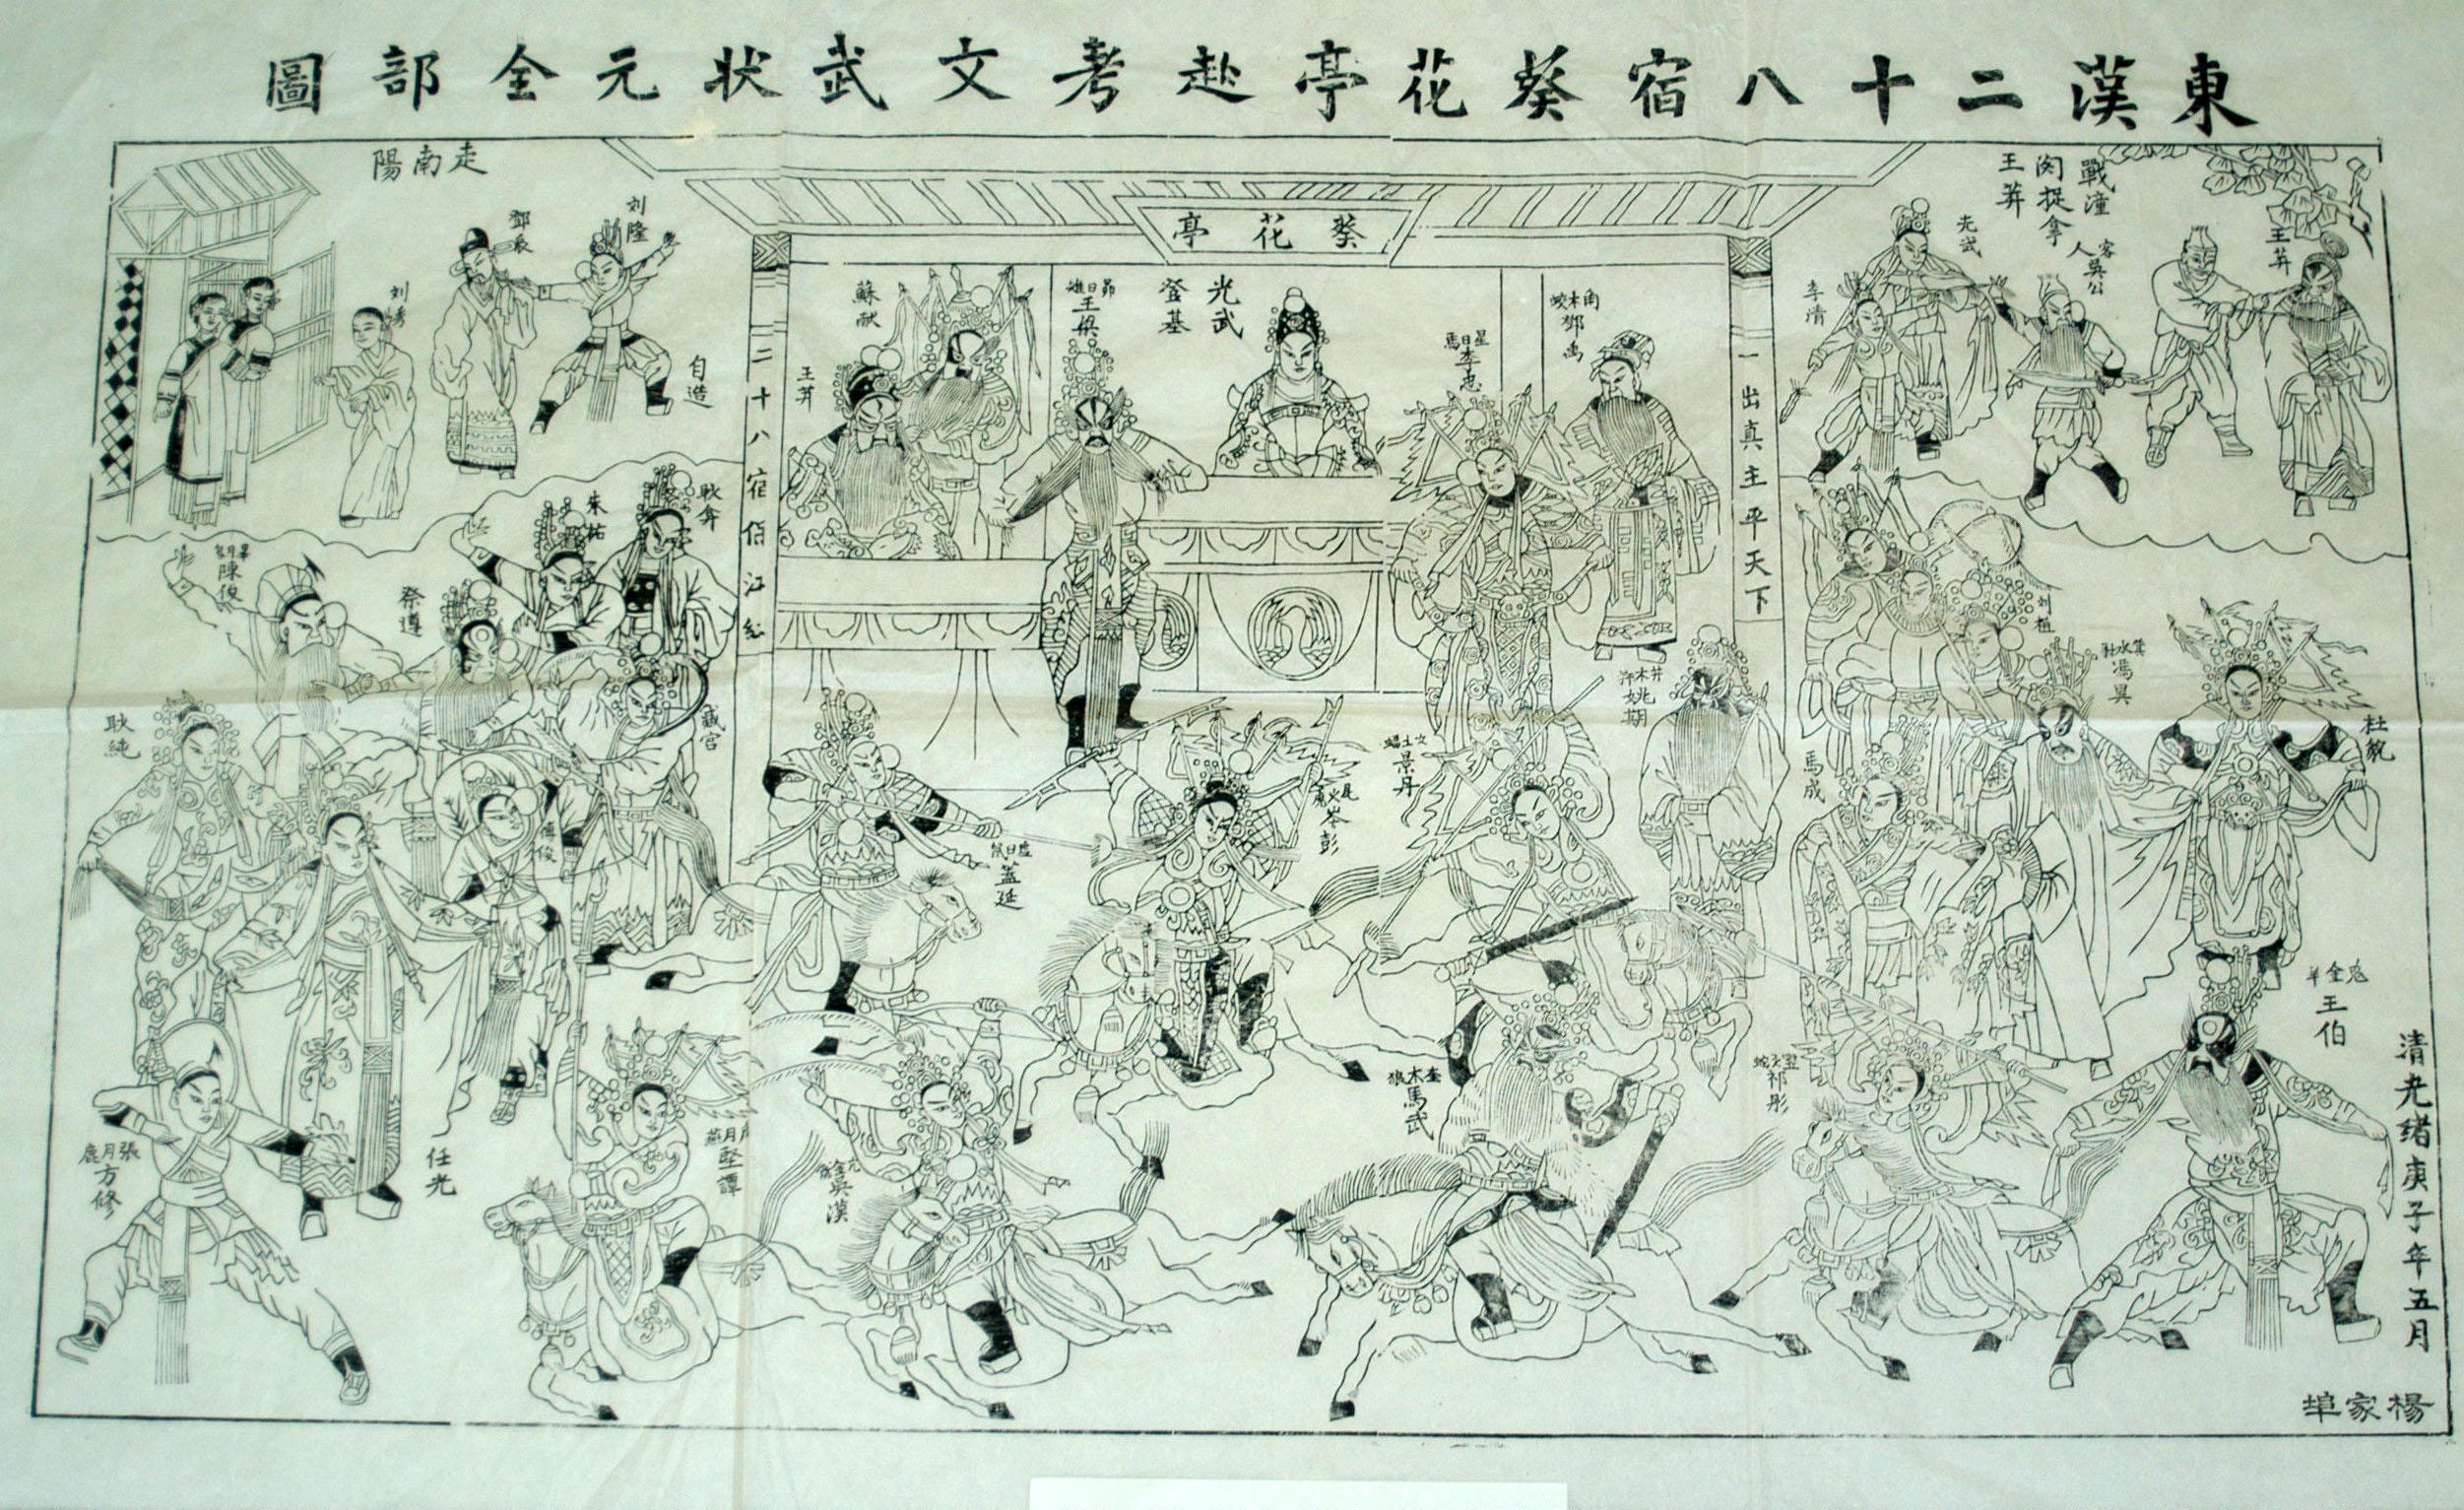 東漢二十八宿葵花亭赴考文武狀元全部圖
戰潼
関捉拿
王莽
光武
李清
客
人
吳公
王莽
走南陽
刘隆
鄧辰
刘秀
自造
葵花亭
一出真主平天下
二十八宿
光武
登基
昴日雞
王梁
蘇献
王莽
星日馬
李忠
角木蛟
鄧禹
耿弇
朱祐
祭遵
畢月烏
陳俊
耿純
臧宮
傅俊
任光
張月鹿
方修
月燕
堅譚
虛日鼠
蓋延
尾火虎
岑彭
女土蝠
景丹
井木犴
姚期
刘植
箕水豹
馮異
杜貌
馬成
鬼金羊
王伯
翌火蛇
祁彤
奎木狼
馬武
亢金
吳漢
清光緒庚子年五月
楊家埠